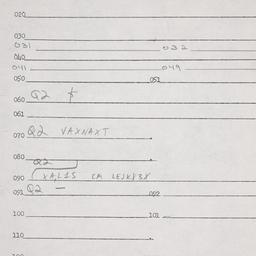 020
030
031 032
040
041 049
050 051
060 Q2
061
070 Q2 VAXNAXT
080 Q2
090
091 Q2 — 092
100 101
110